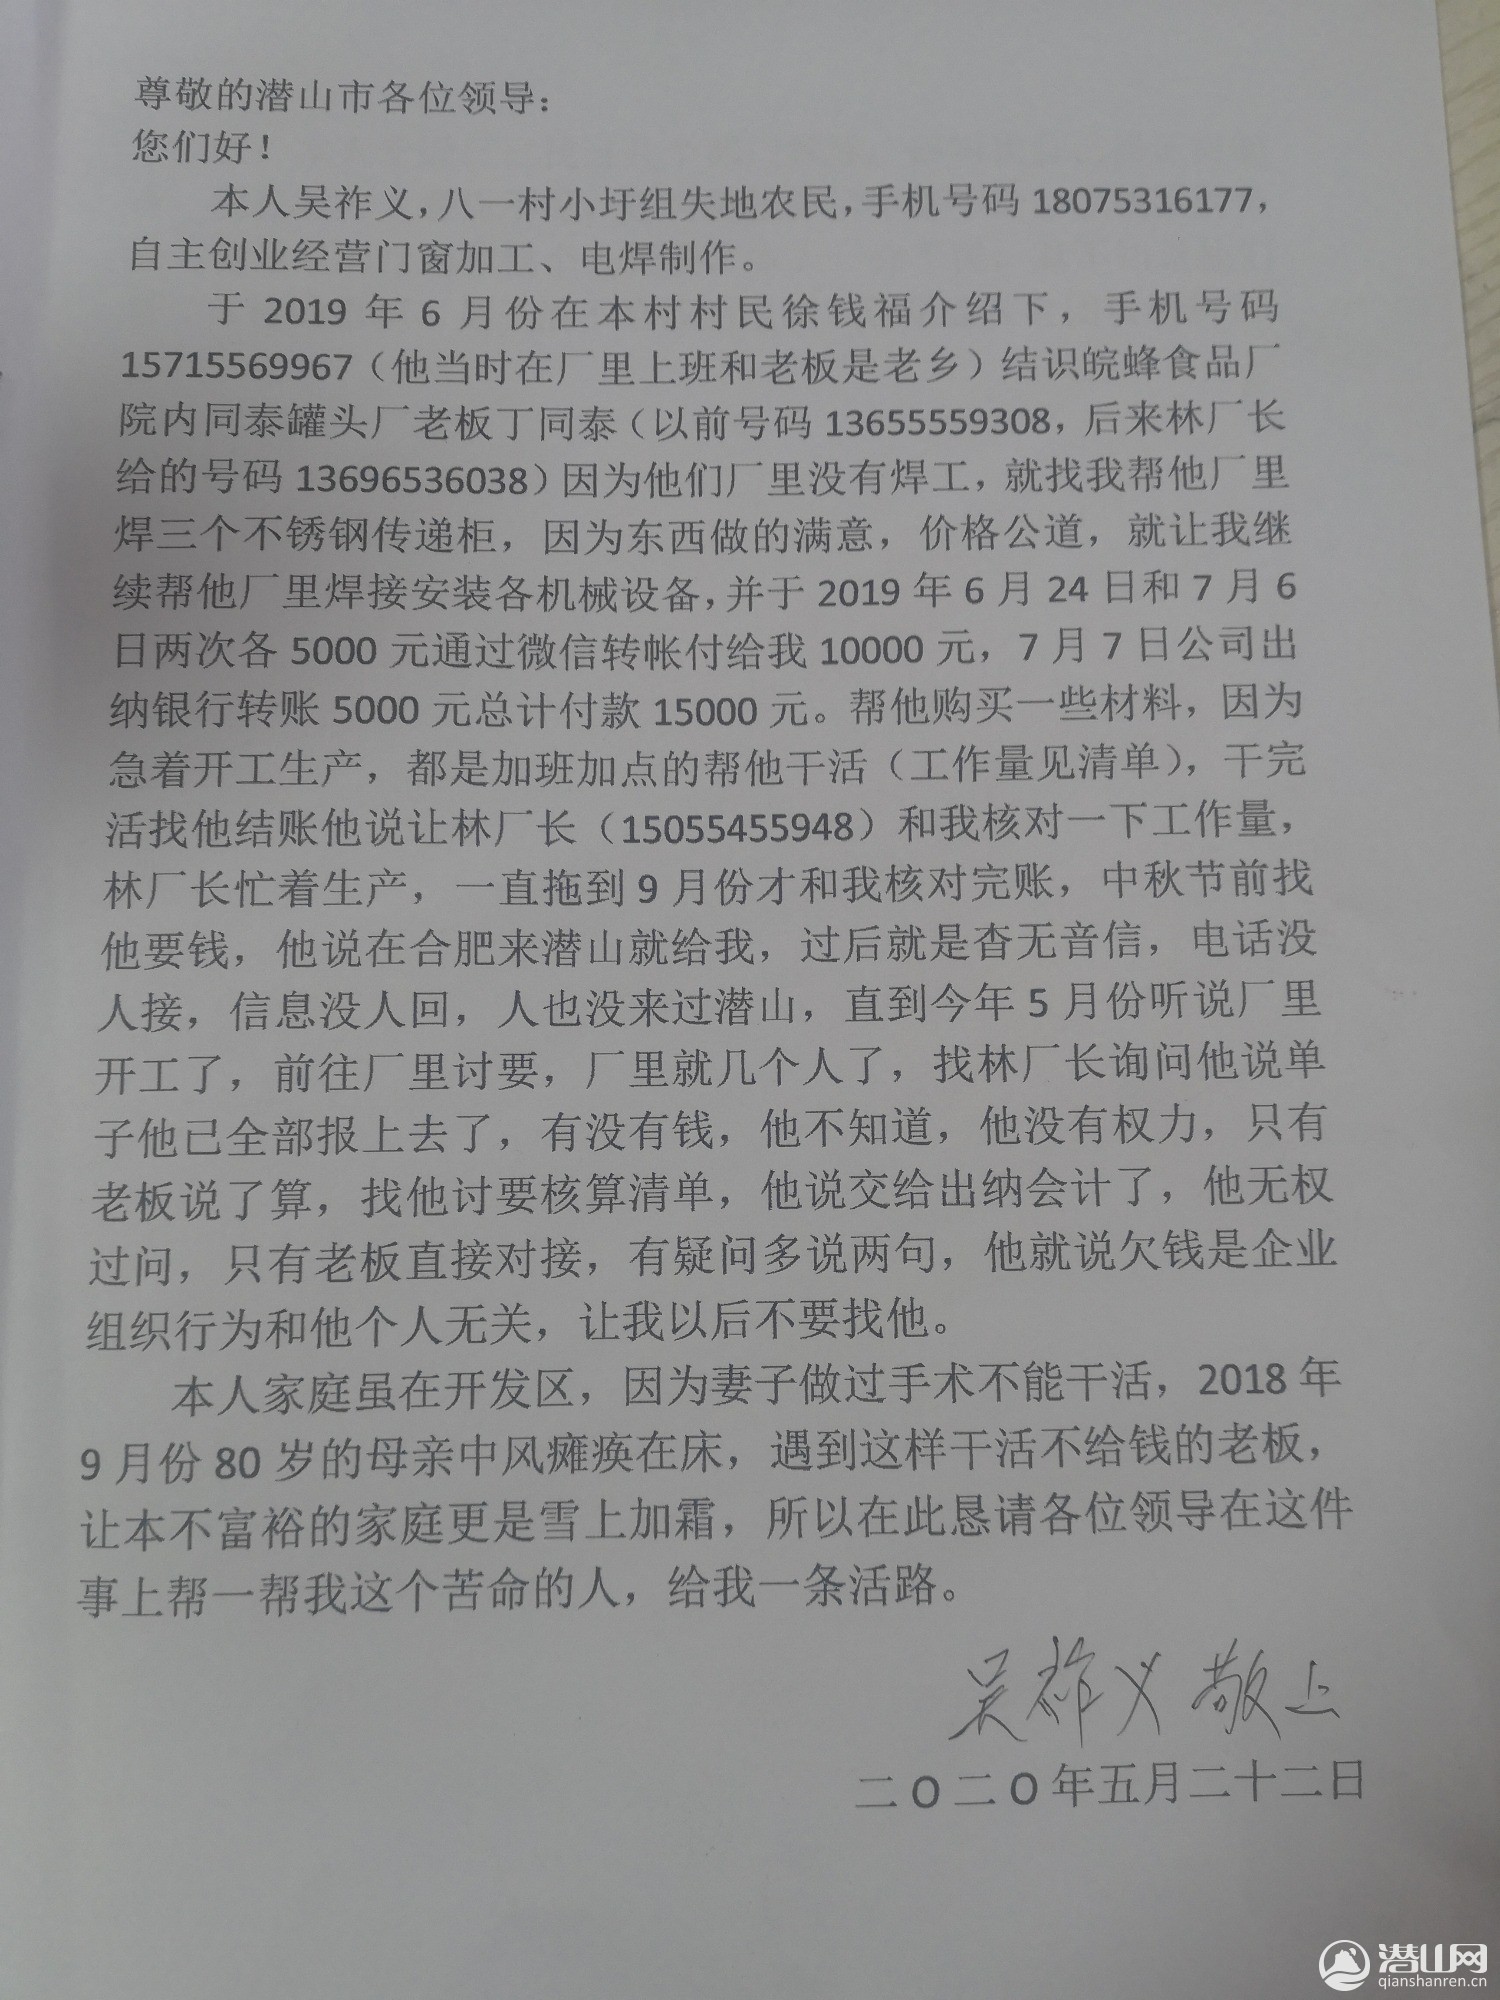 尊敬的潜山市各位领导：
您们好！
本人吴祚义，八一村小圩组失地农民，手机号码18075316177，
自主创业经营门窗加工、电焊制作。
于 2019 年 6 月份在本村村民徐钱福介绍下，手机号码
15715569967（他当时在厂里上班和老板是老乡）结识皖蜂食品厂
院内同泰罐头厂老板丁同泰（以前号码 13655559308，后来林厂长
给的号码 13696536038）因为他们厂里没有焊工，就找我帮他厂里
焊三个不锈钢传递柜，因为东西做的满意，价格公道，就让我继
续帮他厂里焊接安装各机械设备，并于 2019 年 6 月 24 日和 7 月 6
日两次各 5000 元通过微信转帐付给我 10000 元，7 月 7 日公司出
纳银行转账 5000 元总计付款 15000 元。帮他购买一些材料，因为
急着开工生产，都是加班加点的帮他干活（工作量见清单），干完
活找他结账他说让林厂长（15055455948）和我核对一下工作量，
林厂长忙着生产，一直拖到 9 月份才和我核对完账，中秋节前找
他要钱，他说在合肥来潜山就给我，过后就是杳无音信，电话没
人接，信息没人回，人也没来过潜山，直到今年 5 月份听说厂里
开工了，前往厂里讨要，厂里就几个人了，找林厂长询问他说单
子他已全部报上去了，有没有钱，他不知道，他没有权力，只有
老板说了算，找他讨要核算清单，他说交给出纳会计了，他无权
过问，只有老板直接对接，有疑问多说两句，他就说欠钱是企业
组织行为和他个人无关，让我以后不要找他。
本人家庭虽在开发区，因为妻子做过手术不能干活，2018 年
9 月份 80 岁的母亲中风瘫痪在床，遇到这样干活不给钱的老板，
让本不富裕的家庭更是雪上加霜，所以在此恳请各位领导在这件
事上帮一帮我这个苦命的人，给我一条活路。
吴祚义 敬上
二 O 二 O 年五月二十二日
潜山网
qianshanren.cn